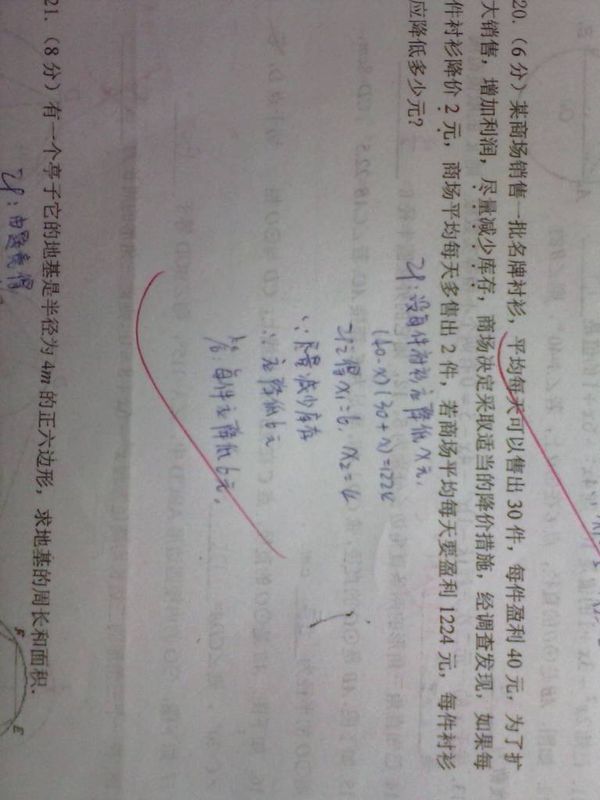 20.（6分）某商场销售一批名牌衬衫，平均每天可以售出30件，每件盈利40元，为了扩
大销售，增加利润，尽量减少库存，商场决定采取适当的降价措施，经调查发现，如果每
件衬衫降价2元，商场平均每天多售出2件，若商场平均每天要盈利1224元，每件衬衫
应降低多少元？
解：设每件衬衫应降低x元.
(40-x)(30+x)=1224
解得x₁=6, x₂=4
∵尽量减少库存
∴应降低6元
答：每件应降低6元.
21.（8分）有一个亭子它的地基是半径为4m的正六边形，求地基的周长和面积.
解：由题意得
F
E